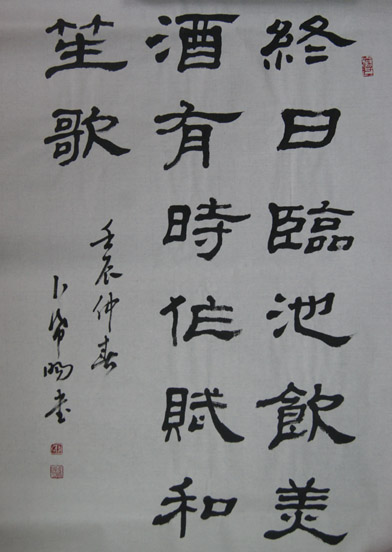 終日臨池飲美
酒有時作賦和
笙歌
壬辰仲春
卜